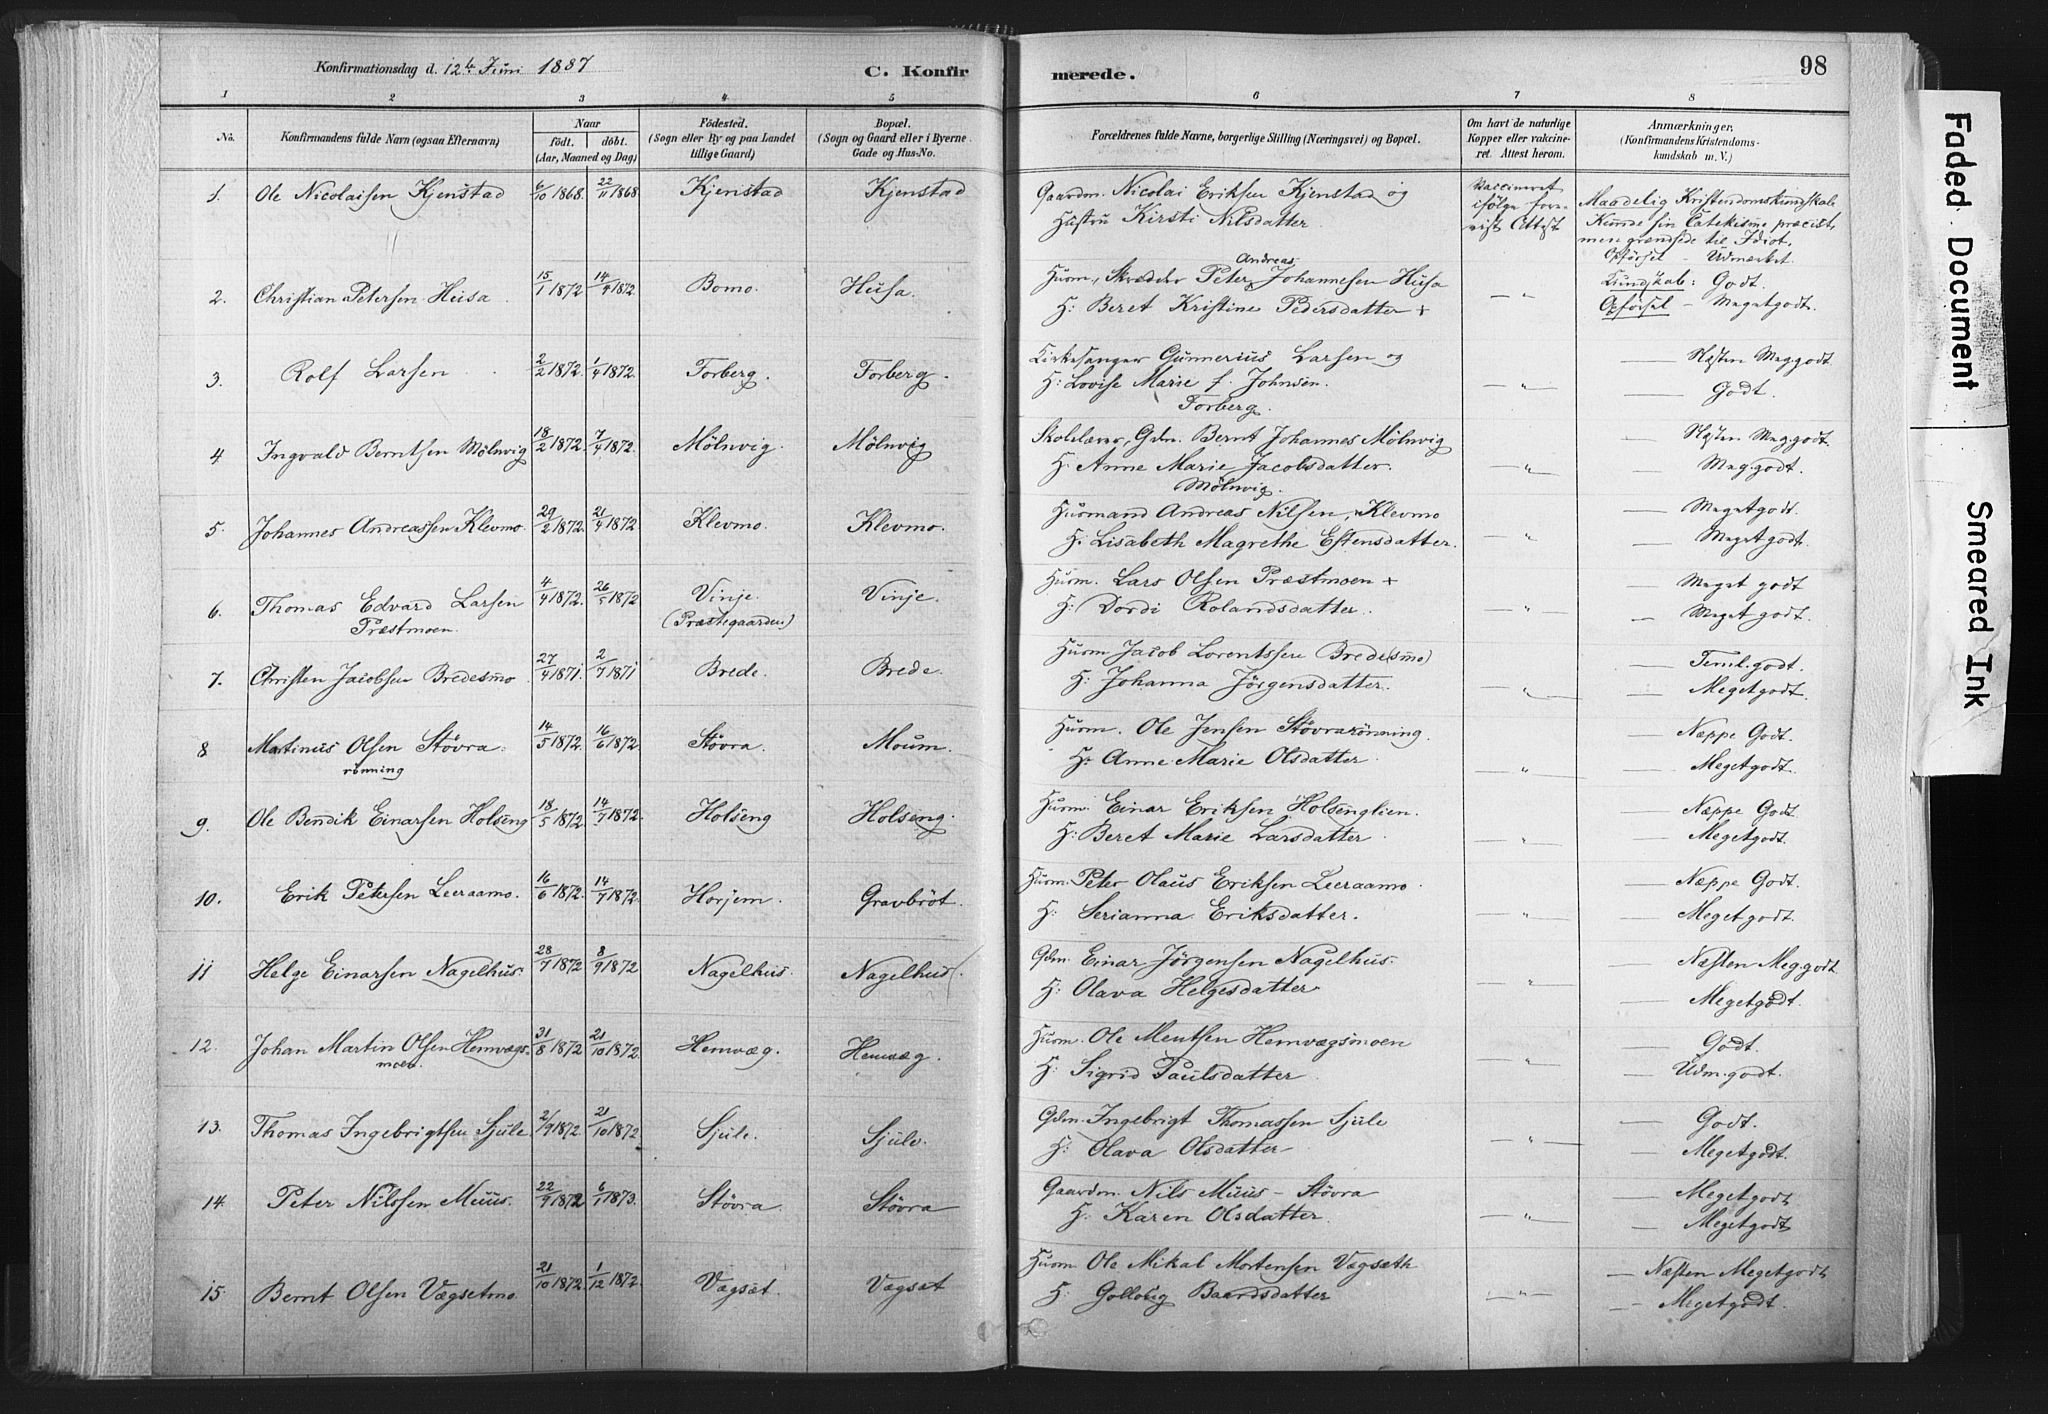 Konfirmationsdag d. 12te Juni 1887
C. Konfir
merede.
98
1 2 3 4 5 6 7 8
No.
Konfirmandens fulde Navn (ogsaa Efternavn)
Naar
født. døbt.
(Aar, Maaned og Dag)
Fødested.
(Sogn eller By og paa Landet
tillige Gaard)
Bopæl.
(Sogn og Gaard eller i Byerne
Gade og Hus-No.
Forældrenes fulde Navne, borgerlige Stilling (Næringsvei) og Bopæl.
Om havt de naturlige
Kopper eller vakcine-
ret. Attest herom.
Anmærkninger.
(Konfirmandens Kristendoms-
kundskab m. V.)
1. Ole Nicolaisen Kjenstad 6/10 1868. 22/11 1868 Kjenstad Kjenstad
Gaardm. Nicolai Eriksen Kjenstad og
Hustru Kirsti Nilsdatter
Vaccineret
ifølge fore-
vist Attest
Maadelig Kristendomskundskab
Kunde sin Catekisme præcist,
men grændsede til Idiot.
Opførsel - Udmærket.
2. Christian Petersen Husa 15/1 1872 14/4 1872. Bomo. Husa.
Andreas
Husm, Skrædder Peter Johannesen Husa
H: Beret Kristine Pedersdatter +
— " Kundskab: Godt.
Opførsel - Megetgodt.
3. Rolf Larsen 2/2 1872. 1/4 1872. Forberg. Forberg.
Kirkesanger Gunnerius Larsen og
H: Lovise Marie f. Johnsen.
Forberg.
— " — — Næsten Meg.godt
— Godt.
4 Ingvald Berntsen Mölnvig 18/2 1872. 7/4 1872. Mölnvig. Mölnvig
Skolelærer, Gdm. Bernt Johannes Mölnvig
H: Anne Marie Jacobsdatter.
Mölnvig.
— " — — Næsten Meg.godt.
— Meg.godt.
5. Johannes Andreassen Klevmo. 29/2 1872. 21/4 1872 Klevmo. Klevmo.
Husmand Andreas Nilsen, Klevmo
H. Lisabeth Magrethe Estensdatter.
— " — — Megetgodt.
— Megetgodt.
6. Thomas Edvard Larsen 4/4 1872. 26/5 1872 Vinje. Vinje.
Præstmoen. (Præstegaarden)
Husm. Lars Olsen Præstmoen +
H: Dordi Rolandsdatter.
— " — — Meget godt
— Meget godt.
7. Christen Jacobsen Bredesmo 27/4 1871. 2/7 1871 Brede. Brede.
Husm Jacob Lorentssen Brede(smo)
H: Johanna Jörgensdatter.
— " — — Teml.godt.
— Megetgodt.
8 Martinus Olsen Stövra= 14/5 1872. 16/6 1872 Stövra. Moum.
rönning
Husm. Ole Jensen Stövrarönning.
H: Anne Marie Olsdatter.
— " — — Næppe Godt.
— Megetgodt.
9. Ole Bendik Einarsen Holseng 18/5 1872. 14/7 1872. Holseng Holseng.
Husm. Einar Eriksen Holsenglien.
H: Beret Marie Larsdatter.
— " — — Næppe Godt
— Megetgodt.
10. Erik Petersen Leeraamo. 16/6 1872. 14/7 1872. Horjem. Gravbröt.
Husm. Peter Olaus Eriksen Leeraamo.
H: Serianna Eriksdatter.
— " — — Næppe Godt.
— Megetgodt.
11 Helge Einarsen Nagelhus. 28/7 1872 8/9 1872 Nagelhus. Nagelhus.
Gdm. Einar Jörgensen Nagelhus.
H: Olava Helgesdatter.
— " — — Næsten Meg.godt.
— Megetgodt.
12. Johan Martin Olsen Hemvægs- 31/8 1872 21/10 1872. Hemvæg. Hemvæg.
moen.
Husm. Ole Mentsen Hemvægsmoen
H: Sigrid Paulsdatter.
— " — — Godt.
— Udm.godt.
13. Thomas Ingebrigtsen Sjule. 2/9 1872. 21/10 1872 Sjule. Sjule.
Gdm. Ingebrigt Thomassen Sjule
H: Olava Olsdatter
— " — — Godt.
— Megetgodt.
14. Peter Nilssen Muus. 22/9 1872 6/1 1873. Stövra. Stövra
Gaardm. Nils Muus - Stövra
H. Karen Olsdatter.
— " — — Megetgodt
— Megetgodt
15. Bernt Olsen Vægsetmo. 21/10 1872. 1/12 1872. Vægsæt. Vægsæt
Husm Ole Mikal Mortensen Vægsæth
H. Gollobig Baardsdatter
— " — — Næsten Megetgodt
— Megetgodt.
Faded Document
Smeared Ink